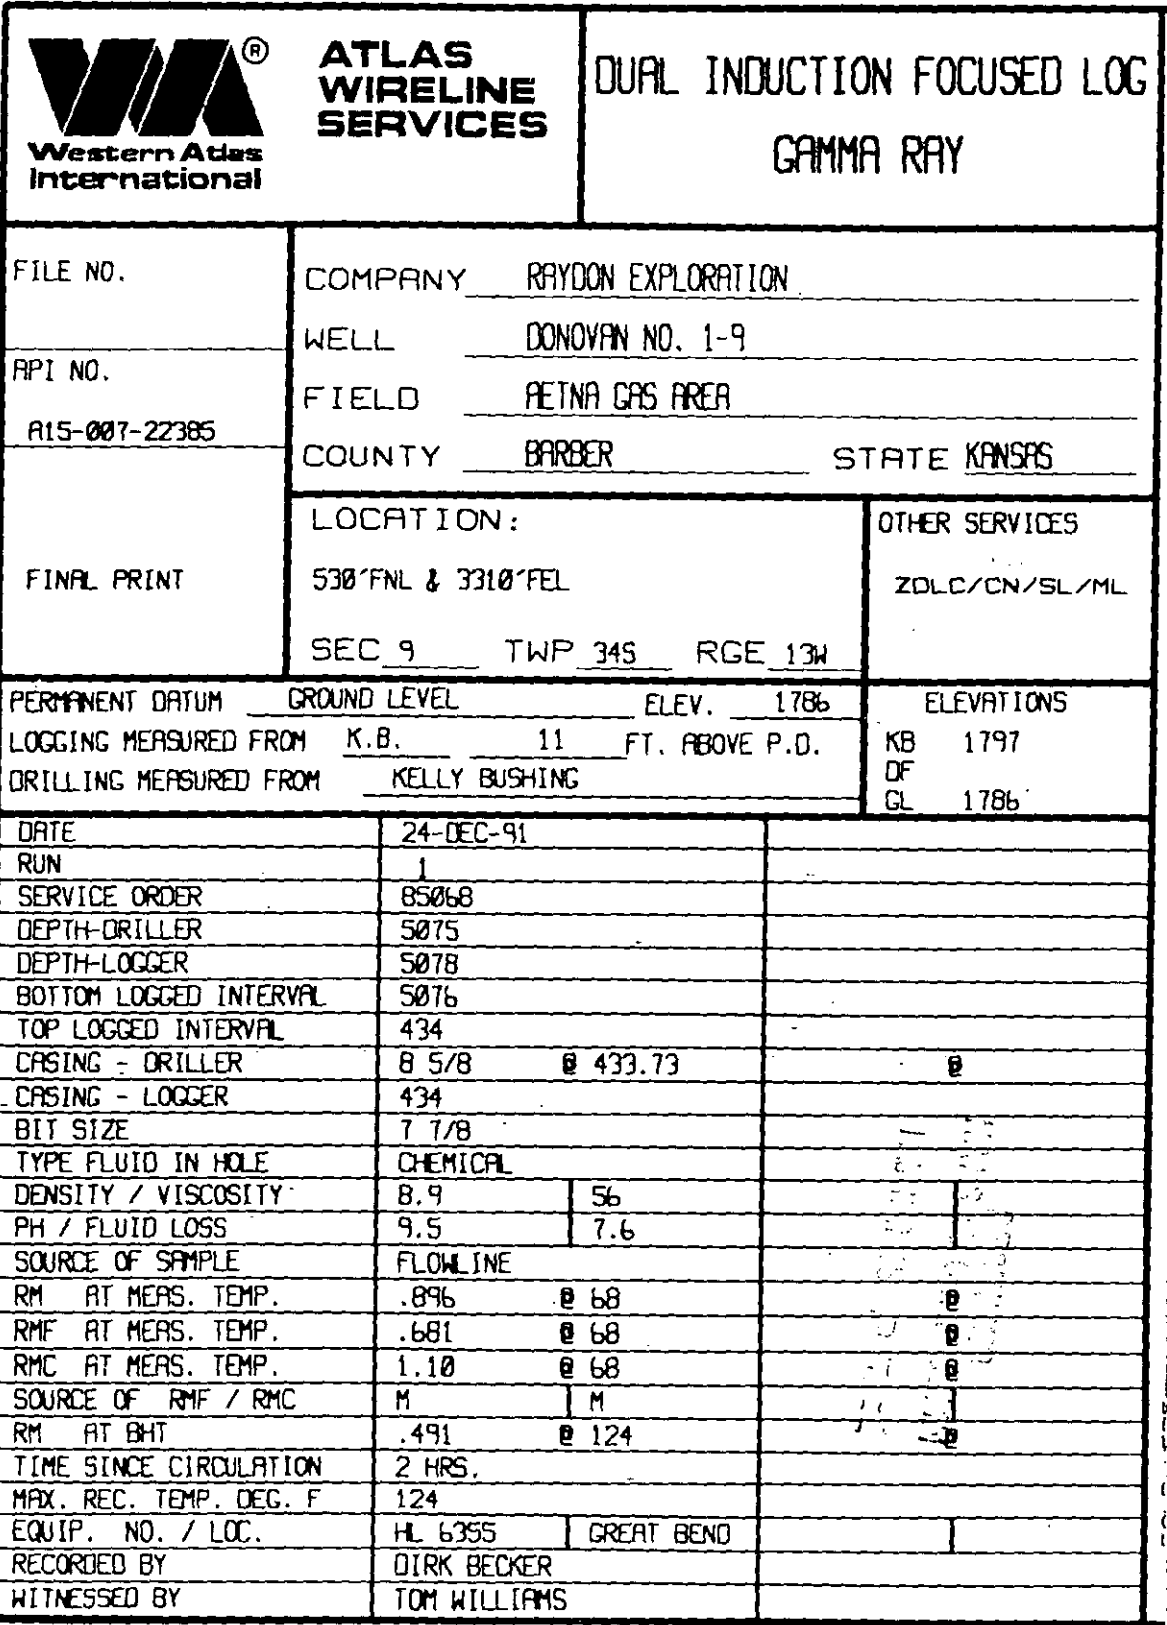 ®
Western Atlas
International
ATLAS
WIRELINE
SERVICES
DUAL INDUCTION FOCUSED LOG
GAMMA RAY
FILE NO.
API NO.
A15-007-22385
FINAL PRINT
COMPANY RAYDON EXPLORATION
WELL DONOVAN NO. 1-9
FIELD AETNA GAS AREA
COUNTY BARBER STATE KANSAS
LOCATION:
530'FNL & 3310'FEL
SEC 9 TWP 34S RGE 13W
OTHER SERVICES
ZDLC/CN/SL/ML
PERMANENT DATUM GROUND LEVEL ELEV. 1786
LOGGING MEASURED FROM K.B. 11 FT. ABOVE P.D.
DRILLING MEASURED FROM KELLY BUSHING
ELEVATIONS
KB 1797
DF
GL 1786
DATE 24-DEC-91
RUN 1
SERVICE ORDER 85068
DEPTH-DRILLER 5075
DEPTH-LOGGER 5078
BOTTOM LOGGED INTERVAL 5076
TOP LOGGED INTERVAL 434
CASING - DRILLER 8 5/8 @ 433.73 @
CASING - LOGGER 434
BIT SIZE 7 7/8
TYPE FLUID IN HOLE CHEMICAL
DENSITY / VISCOSITY 8.9 56
PH / FLUID LOSS 9.5 7.6
SOURCE OF SAMPLE FLOWLINE
RM AT MEAS. TEMP. .896 @ 68 @
RMF AT MEAS. TEMP. .681 @ 68 @
RMC AT MEAS. TEMP. 1.10 @ 68 @
SOURCE OF RMF / RMC M M
RM AT BHT .491 @ 124 @
TIME SINCE CIRCULATION 2 HRS.
MAX. REC. TEMP. DEG. F 124
EQUIP. NO. / LOC. HL 6355 GREAT BEND
RECORDED BY DIRK BECKER
WITNESSED BY TOM WILLIAMS